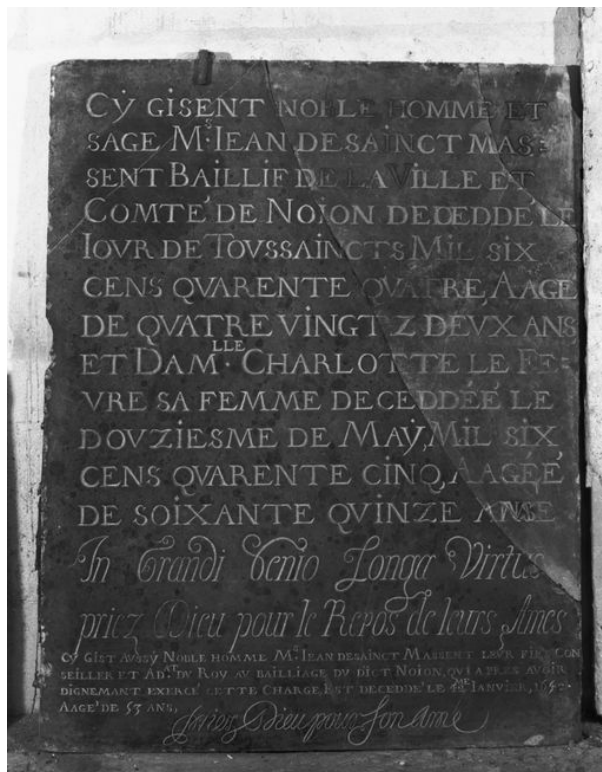 CŸ GISENT NOBLE HOMME ET
SAGE M.S IEAN DE SAINCT MAS=
SENT BAILLIF DE LA VILLE ET
COMTÉ DE NOION DECEDDÉ LE
IOVR DE TOVSSAINCTS MIL SIX
CENS QVARENTE QVATRE, AAGÉ
DE QVATRE VINGTZ DEVX ANS
ET DAM.LLE CHARLOTTE LE FE=
VRE SA FEMME DECEDDÉÉ LE
DOVZIESME DE MAŸ, MIL SIX
CENS QVARENTE CINQ, AAGÉÉ
DE SOIXANTE QVINZE ANS
In Grandi Genio Longa Virtus
priez Dieu pour le Repos de leurs Ames
CŸ GIST AVSSŸ NOBLE HOMME M.S IEAN DESAINCT MASSENT LEVR FILZ CON
SEILLER ET AD.AT DV ROY AV BAILLIAGE DV DICT NOION, QVI APRES AVOIR
DIGNEMANT EXERCÉ CETTE CHARGE, EST DECEDDÉ LE IANVIER, 1652.
AAGÉ DE 53 ANS,
priez Dieu pour son Ame